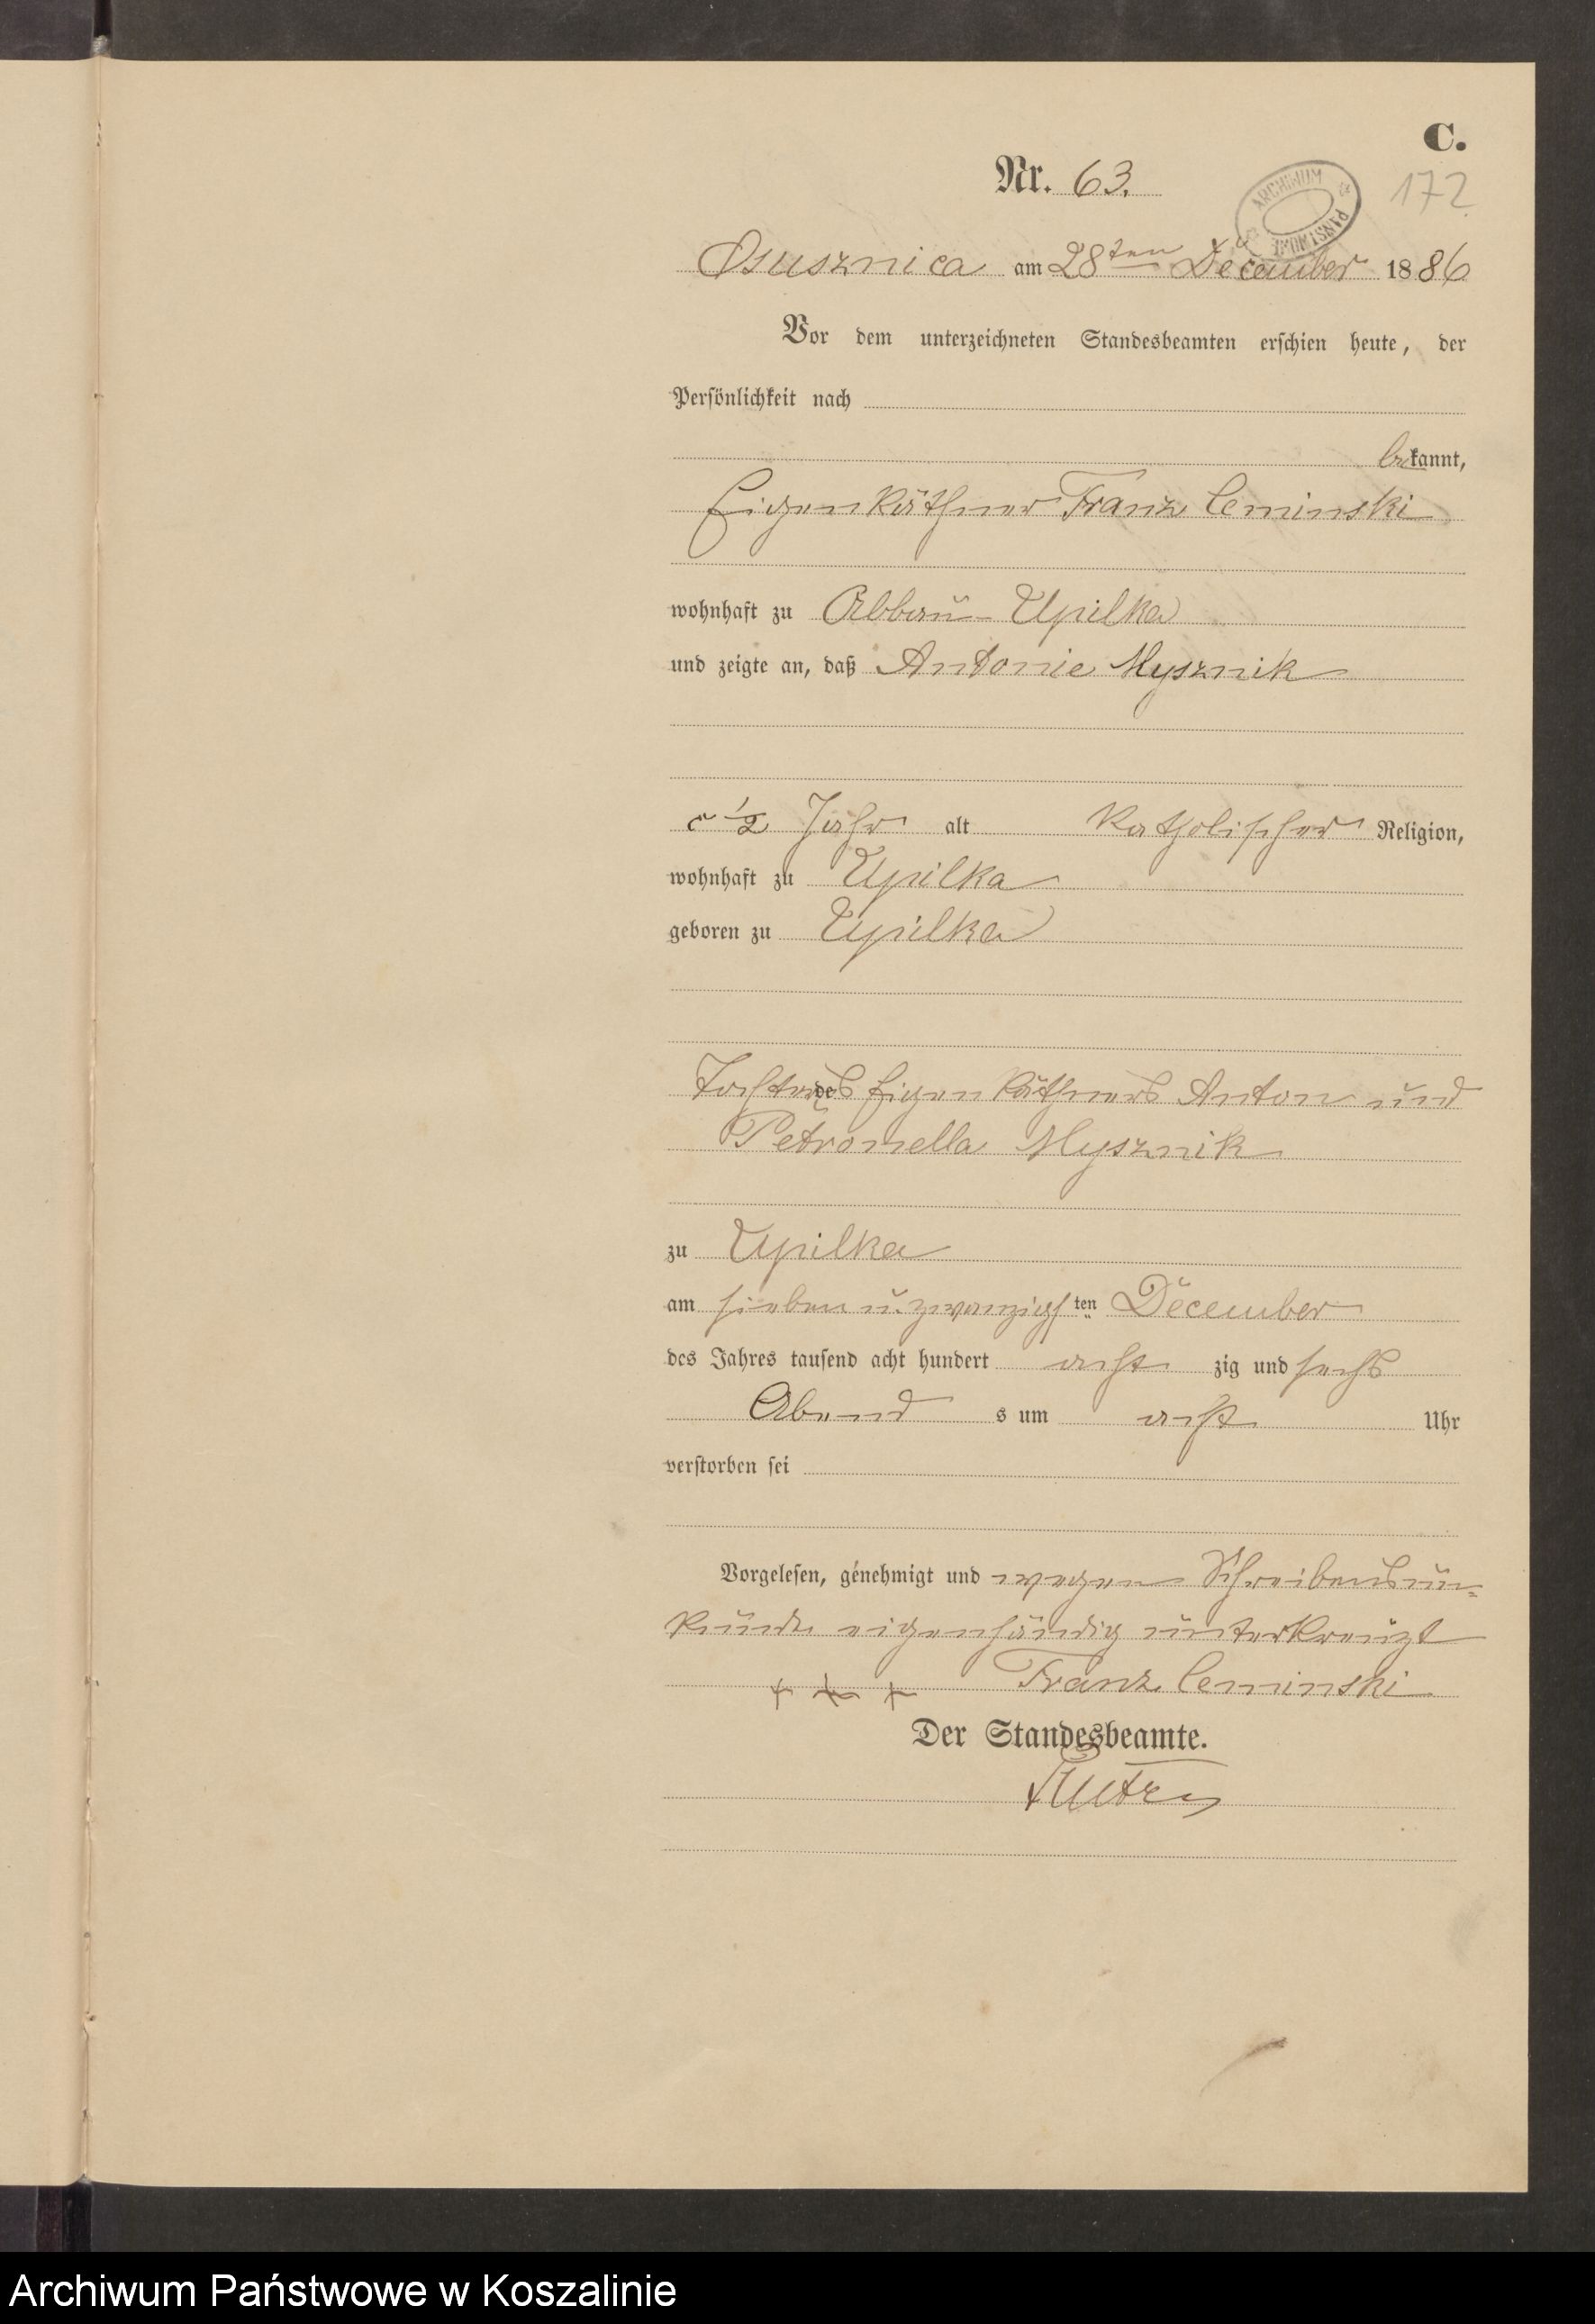 C.
Nr. 63.
172
ARCHIWUM PAŃSTWOWE
Osusznica am 28ten December 1886
Vor dem unterzeichneten Standesbeamten erschien heute, der
Persönlichkeit nach
bekannt,
Eigenkäthner Franz Ceminski
wohnhaft zu Abbau-Upilka
und zeigte an, daß Antonie Mysznik
c 1/2 Jahr alt katholischer Religion,
wohnhaft zu Upilka
geboren zu Upilka
Tochter des Eigenkäthners Anton und
Petronella Mysznik
zu Upilka
am sieben u. zwanzigsten December
des Jahres tausend acht hundert acht zig und sechs
Abend s um acht Uhr
verstorben sei
Vorgelesen, genehmigt und wegen Schreibensun-
kunde eigenhändig unterkreuzt
+ + + Franz Ceminski
Der Standesbeamte.
Archiwum Państwowe w Koszalinie